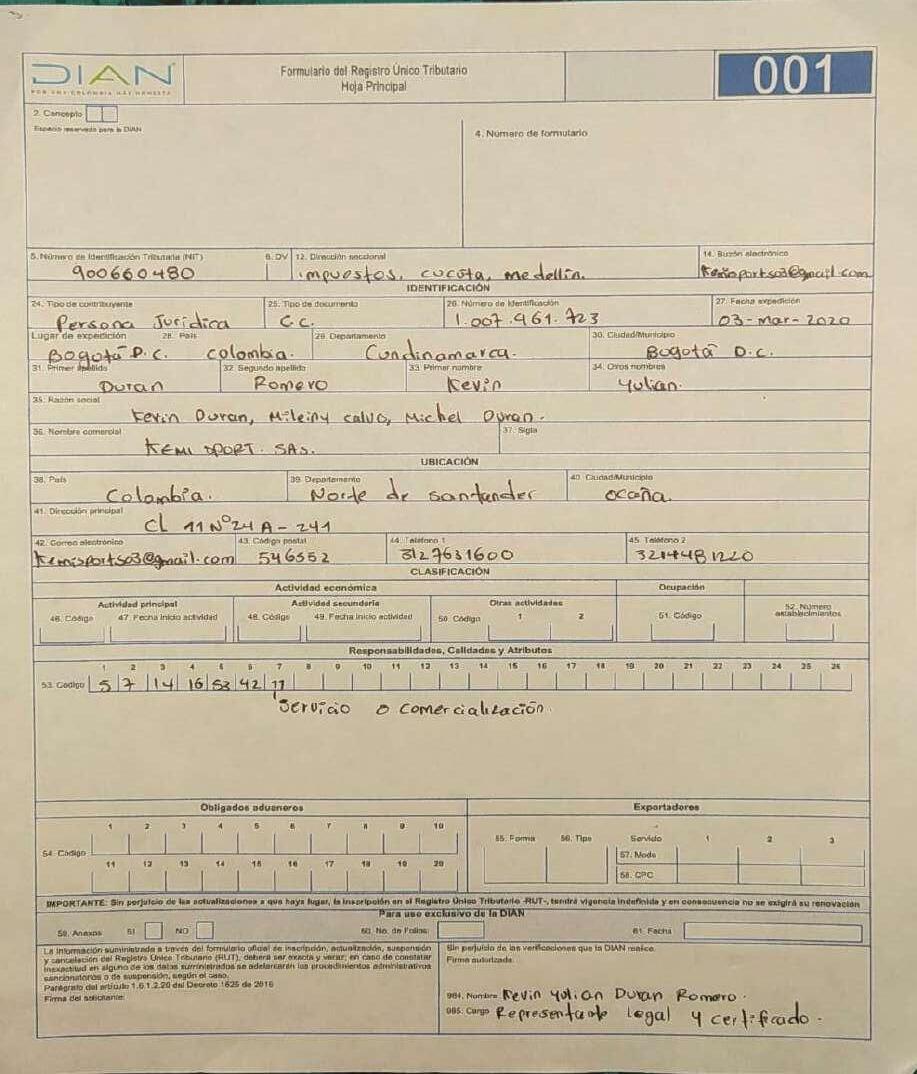 DIAN
POR UNA COLOMBIA MÁS HONESTA
Formulario del Registro Único Tributario
Hoja Principal
001
2. Concepto
Espacio reservado para la DIAN
4. Número de formulario
5. Número de Identificación Tributaria (NIT) 6. DV 12. Dirección seccional 14. Buzón electrónico
900660480 impuestos, cucota, medellín. Kemisports03@gmail.com
IDENTIFICACIÓN
24. Tipo de contribuyente 25. Tipo de documento 26. Número de Identificación 27. Fecha expedición
Persona Juridica C.C. 1.007.961.723 03-Mar-2020
Lugar de expedición 28. País 29. Departamento 30. Ciudad/Municipio
Bogotá D.C. colombia. Cundinamarca. Bogotá D.C.
31. Primer apellido 32. Segundo apellido 33. Primer nombre 34. Otros nombres
Duran Romero Kevin Yulian.
35. Razón social
Kevin Duran, Mileiny calvo, Michel Duran.
36. Nombre comercial 37. Sigla
KEMI SPORT. SAS.
UBICACIÓN
38. País 39. Departamento 40. Ciudad/Municipio
Colombia. Norte de santander ocaña.
41. Dirección principal
CL 11 N°24 A - 241
42. Correo electrónico 43. Código postal 44. Teléfono 1 45. Teléfono 2
Kemisports03@gmail.com 546552 3127631600 3214481220
CLASIFICACIÓN
Actividad económica Ocupación
Actividad principal Actividad secundaria Otras actividades 52. Número establecimientos
46. Código 47. Fecha inicio actividad 48. Código 49. Fecha inicio actividad 50. Código 1 2 51. Código
Responsabilidades, Calidades y Atributos
1 2 3 4 5 6 7 8 9 10 11 12 13 14 15 16 17 18 19 20 21 22 23 24 25 26
53. Código 5 7 14 16 53 42 11
servicio o comercialización.
Obligados aduaneros Exportadores
1 2 3 4 5 6 7 8 9 10
54. Código
11 12 13 14 15 16 17 18 19 20
55. Forma 56. Tipo Servicio 1 2 3
57. Modo
58. CPC
IMPORTANTE: Sin perjuicio de las actualizaciones a que haya lugar, la inscripción en el Registro Único Tributario -RUT-, tendrá vigencia indefinida y en consecuencia no se exigirá su renovación
Para uso exclusivo de la DIAN
59. Anexos SI NO 60. No. de Folios: 61. Fecha
La información suministrada a través del formulario oficial de inscripción, actualización, suspensión
y cancelación del Registro Único Tributario (RUT), deberá ser exacta y veraz; en caso de constatar
inexactitud en alguno de los datos suministrados se adelantarán los procedimientos administrativos
sancionatorios o de suspensión, según el caso.
Parágrafo del artículo 1.6.1.2.20 del Decreto 1625 de 2016
Firma del solicitante:
Sin perjuicio de las verificaciones que la DIAN realice.
Firma autorizada:
984. Nombre Kevin Yulian Duran Romero.
985. Cargo Representante legal y certificado.